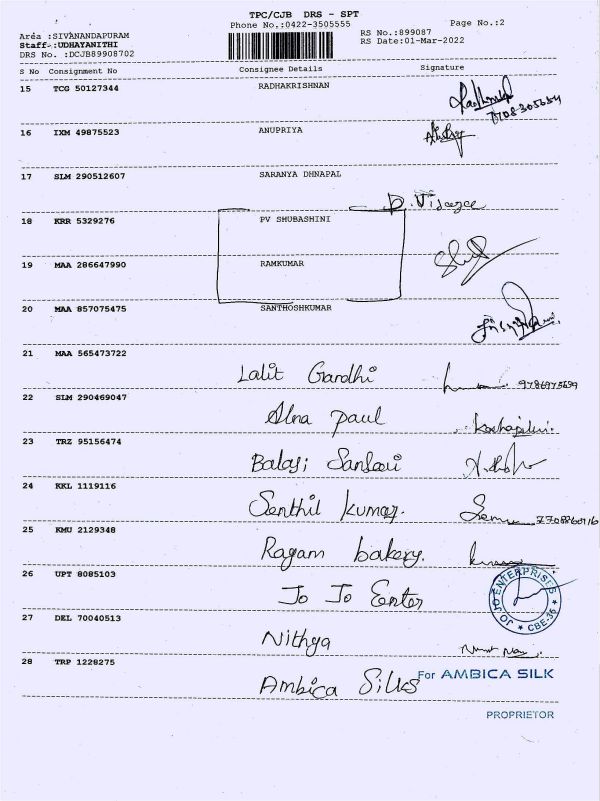 TPC/CJB DRS - SPT
Phone No.:0422-3505555
Page No.:2
Aréa :SIVANANDAPURAM
RS No.:899087
Staff :UDHAYANITHI
RS Date:01-Mar-2022
DRS No. :DCJB89908702
S No Consignment No Consignee Details Signature
15 TCG 50127344 RADHAKRISHNAN
16 IXM 49875523 ANUPRIYA
17 SLM 290512607 SARANYA DHNAPAL
18 KRR 5329276 PV SHUBASHINI
19 MAA 286647990 RAMKUMAR
20 MAA 857075475 SANTHOSHKUMAR
21 MAA 565473722 Lalit Gandhi
22 SLM 290469047 Alna paul
23 TRZ 95156474 Balaji
24 KKL 1119116 Senthil kumar.
25 KMU 2129348 Ragam bakery.
26 UPT 8085103 Jo Jo Enter
JO JO ENTERPRISES ★ CBE-35 ★
27 DEL 70040513 Nithya
28 TRP 1228275 Ambica Silks
For AMBICA SILK
PROPRIETOR